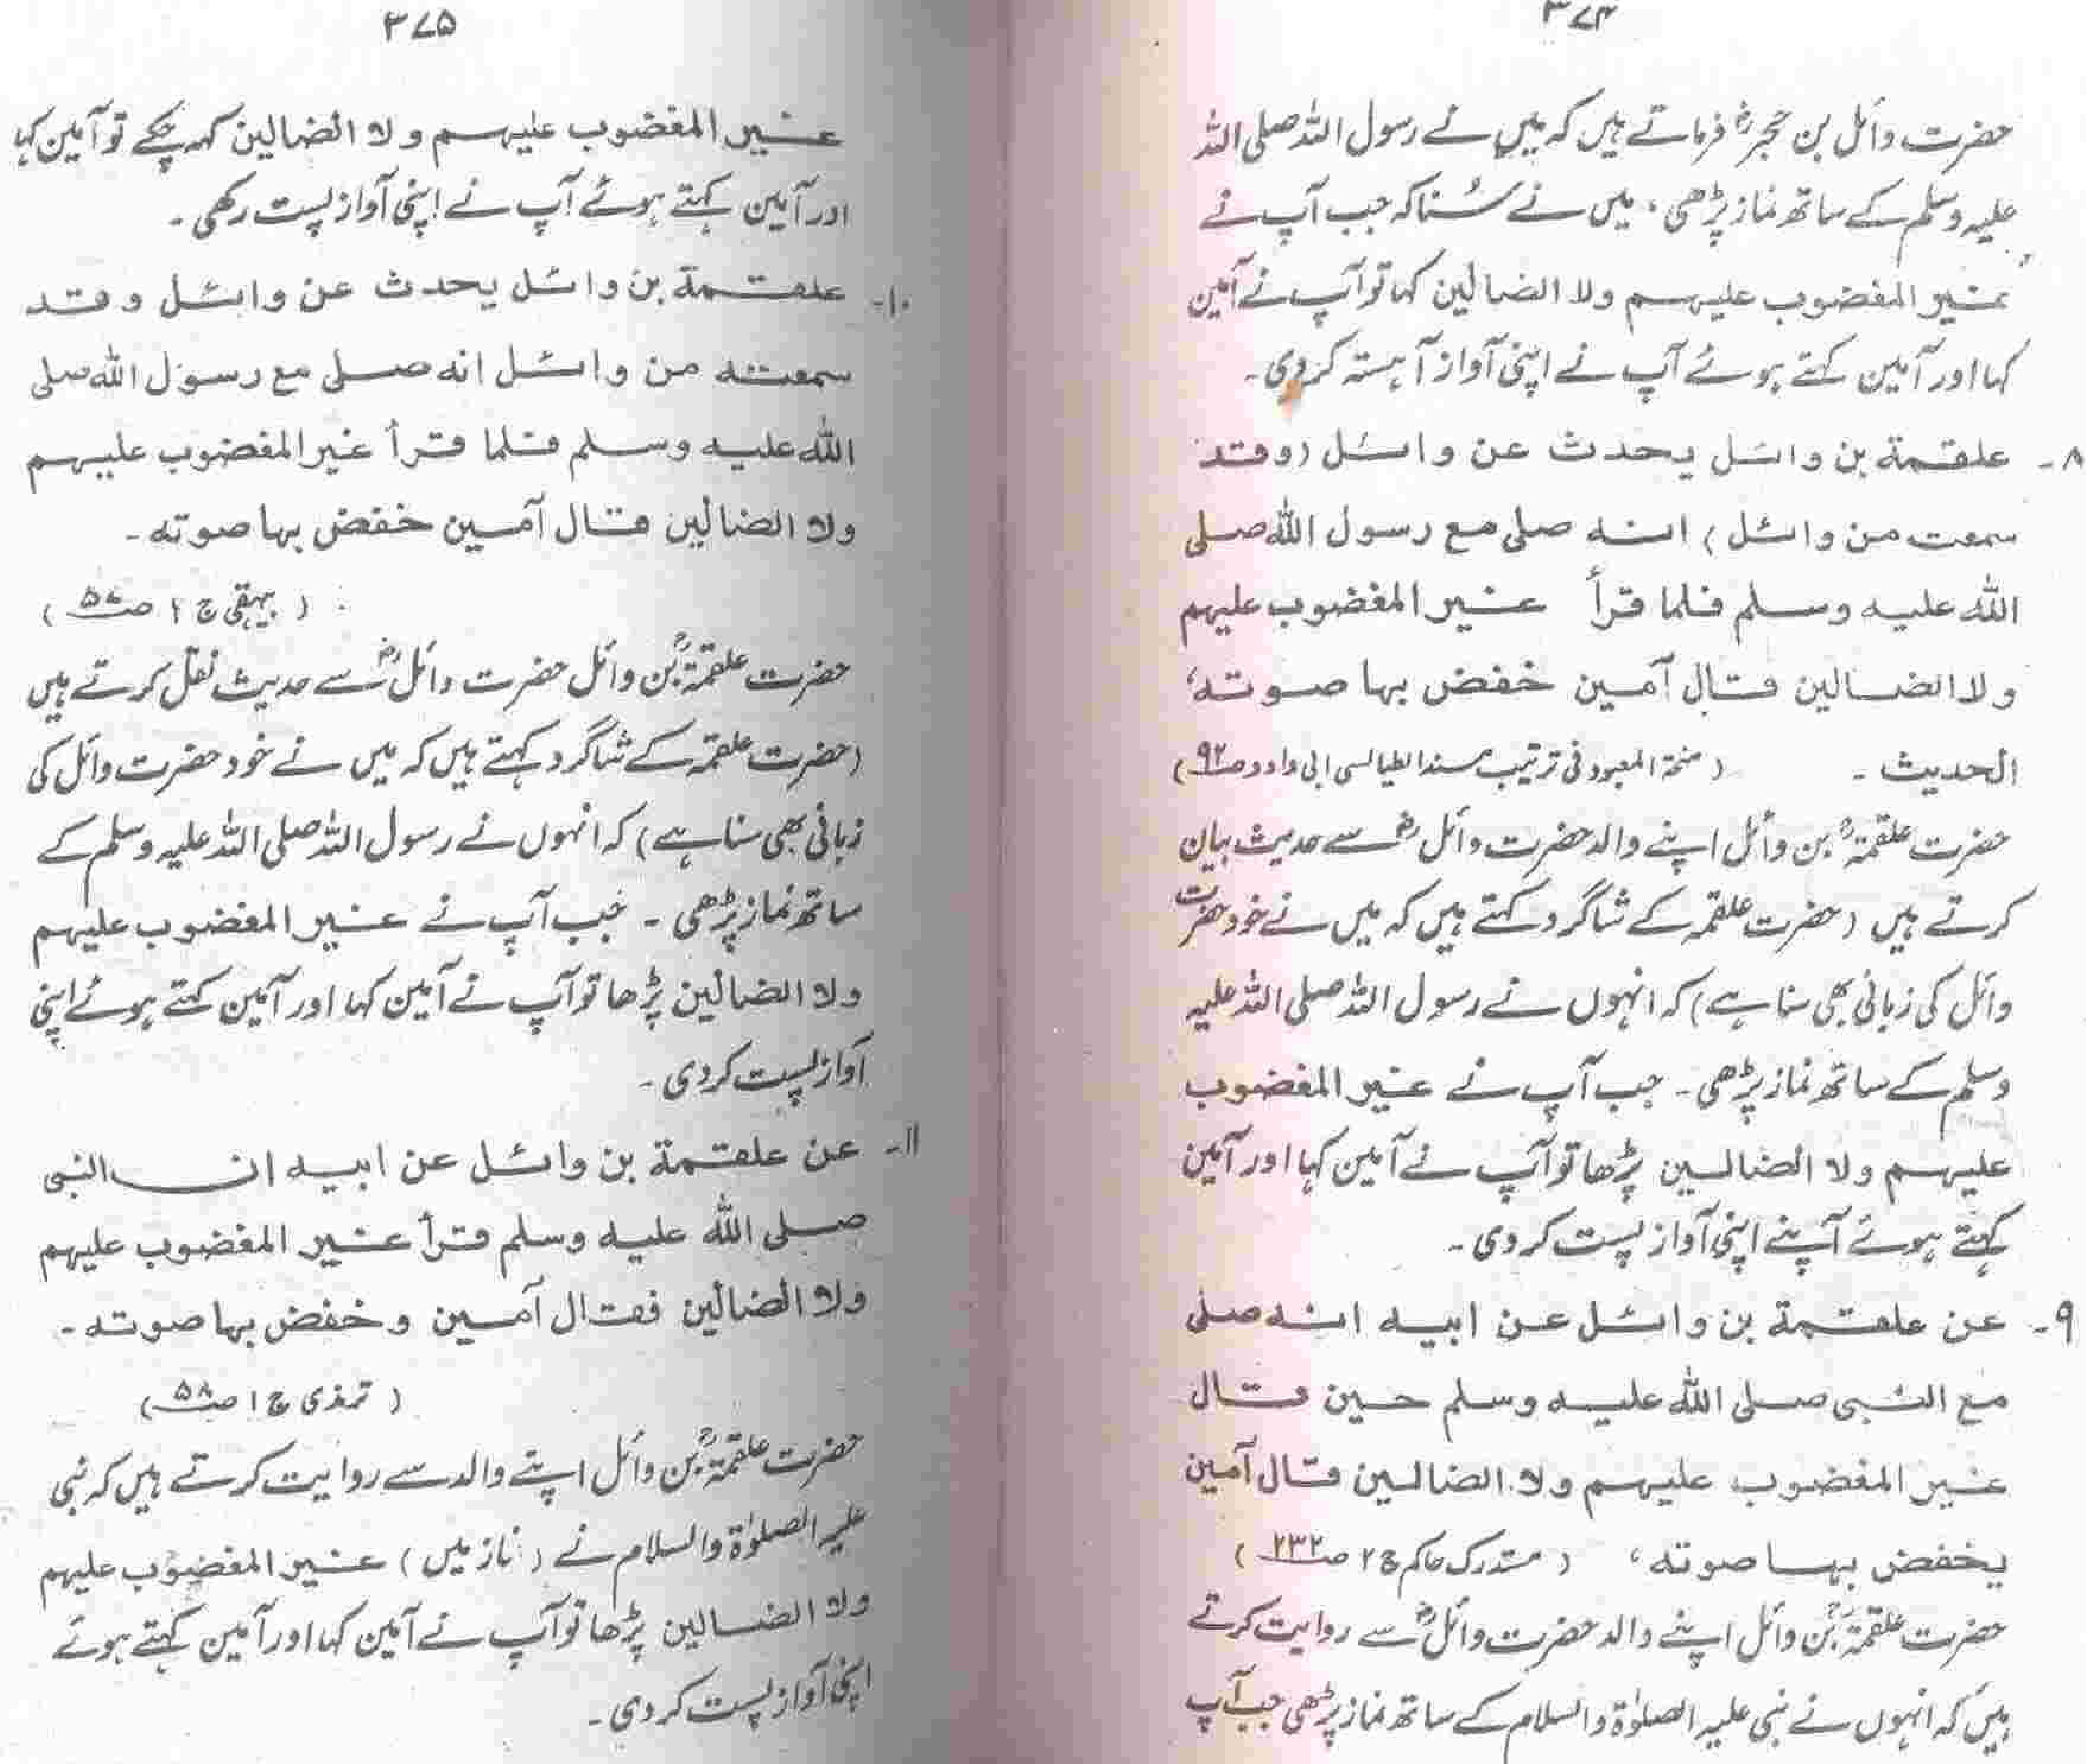 ۳۷۴
حضرت وائل بن حجرؓ فرماتے ہیں کہ میں نے رسول اللہ صلی اللہ
علیہ وسلم کے ساتھ نماز پڑھی، میں نے سُنا کہ جب آپ نے
غیر المغضوب علیہم ولا الضالین کہا تو آپ نے آمین
کہا اور آمین کہتے ہوئے آپ نے اپنی آواز آہستہ کر دی۔
۸۔ علقمة بن وائل یحدث عن وائل (وقد
سمعت من وائل) انه صلی مع رسول اللہ صلی
اللہ علیه وسلم فلما قرأ غیر المغضوب علیہم
ولا الضالین قال آمین خفض بہا صوته،
الحدیث۔ (منحۃ المعبود فی ترتیب مسند الطیالسی ابی داود ص۹۲)
حضرت علقمۃؒ بن وائل اپنے والد حضرت وائلؓ سے حدیث بیان
کرتے ہیں (حضرت علقمہ کے شاگرد کہتے ہیں کہ میں نے خود حضرت
وائل کی زبانی بھی سنا ہے) کہ انہوں نے رسول اللہ صلی اللہ علیہ
وسلم کے ساتھ نماز پڑھی۔ جب آپ نے غیر المغضوب
علیہم ولا الضالین پڑھا تو آپ نے آمین کہا اور آمین
کہتے ہوئے آپنے اپنی آواز پست کر دی۔
۹۔ عن علقمة بن وائل عن ابیه انه صلی
مع النبی صلی اللہ علیه وسلم حین قال
غیر المغضوب علیہم ولا الضالین قال آمین
یخفض بہا صوته، (مستدرک حاکم ج۲ ص۲۳۲)
حضرت علقمۃؒ بن وائل اپنے والد حضرت وائلؓ سے روایت کرتے
ہیں کہ انہوں نے نبی علیہ الصلوٰۃ والسلام کے ساتھ نماز پڑھی جب آپ
۳۷۵
غیر المغضوب علیہم ولا الضالین کہہ چکے تو آمین کہا
اور آمین کہتے ہوئے آپ نے اپنی آواز پست رکھی۔
۱۰۔ علقمة بن وائل یحدث عن وائل وقد
سمعته من وائل انه صلی مع رسول اللہ صلی
اللہ علیه وسلم فلما قرأ غیر المغضوب علیہم
ولا الضالین قال آمین خفض بہا صوته۔
(بیہقی ج۱ ص۵۷)
حضرت علقمۃؒ بن وائل حضرت وائلؓ سے حدیث نقل کرتے ہیں
(حضرت علقمہ کے شاگرد کہتے ہیں کہ میں نے خود حضرت وائل کی
زبانی بھی سنا ہے) کہ انہوں نے رسول اللہ صلی اللہ علیہ وسلم کے
ساتھ نماز پڑھی۔ جب آپ نے غیر المغضوب علیہم
ولا الضالین پڑھا تو آپ نے آمین کہا اور آمین کہتے ہوئے اپنی
آواز پست کر دی۔
۱۱۔ عن علقمة بن وائل عن ابیه ان النبی
صلی اللہ علیه وسلم قرأ غیر المغضوب علیہم
ولا الضالین فقال آمین وخفض بہا صوته۔
(ترمذی ج۱ ص۵۸)
حضرت علقمۃؒ بن وائل اپنے والد سے روایت کرتے ہیں کہ نبی
علیہ الصلوٰۃ والسلام نے (نماز میں) غیر المغضوب علیہم
ولا الضالین پڑھا تو آپ نے آمین کہا اور آمین کہتے ہوئے
اپنی آواز پست کر دی۔